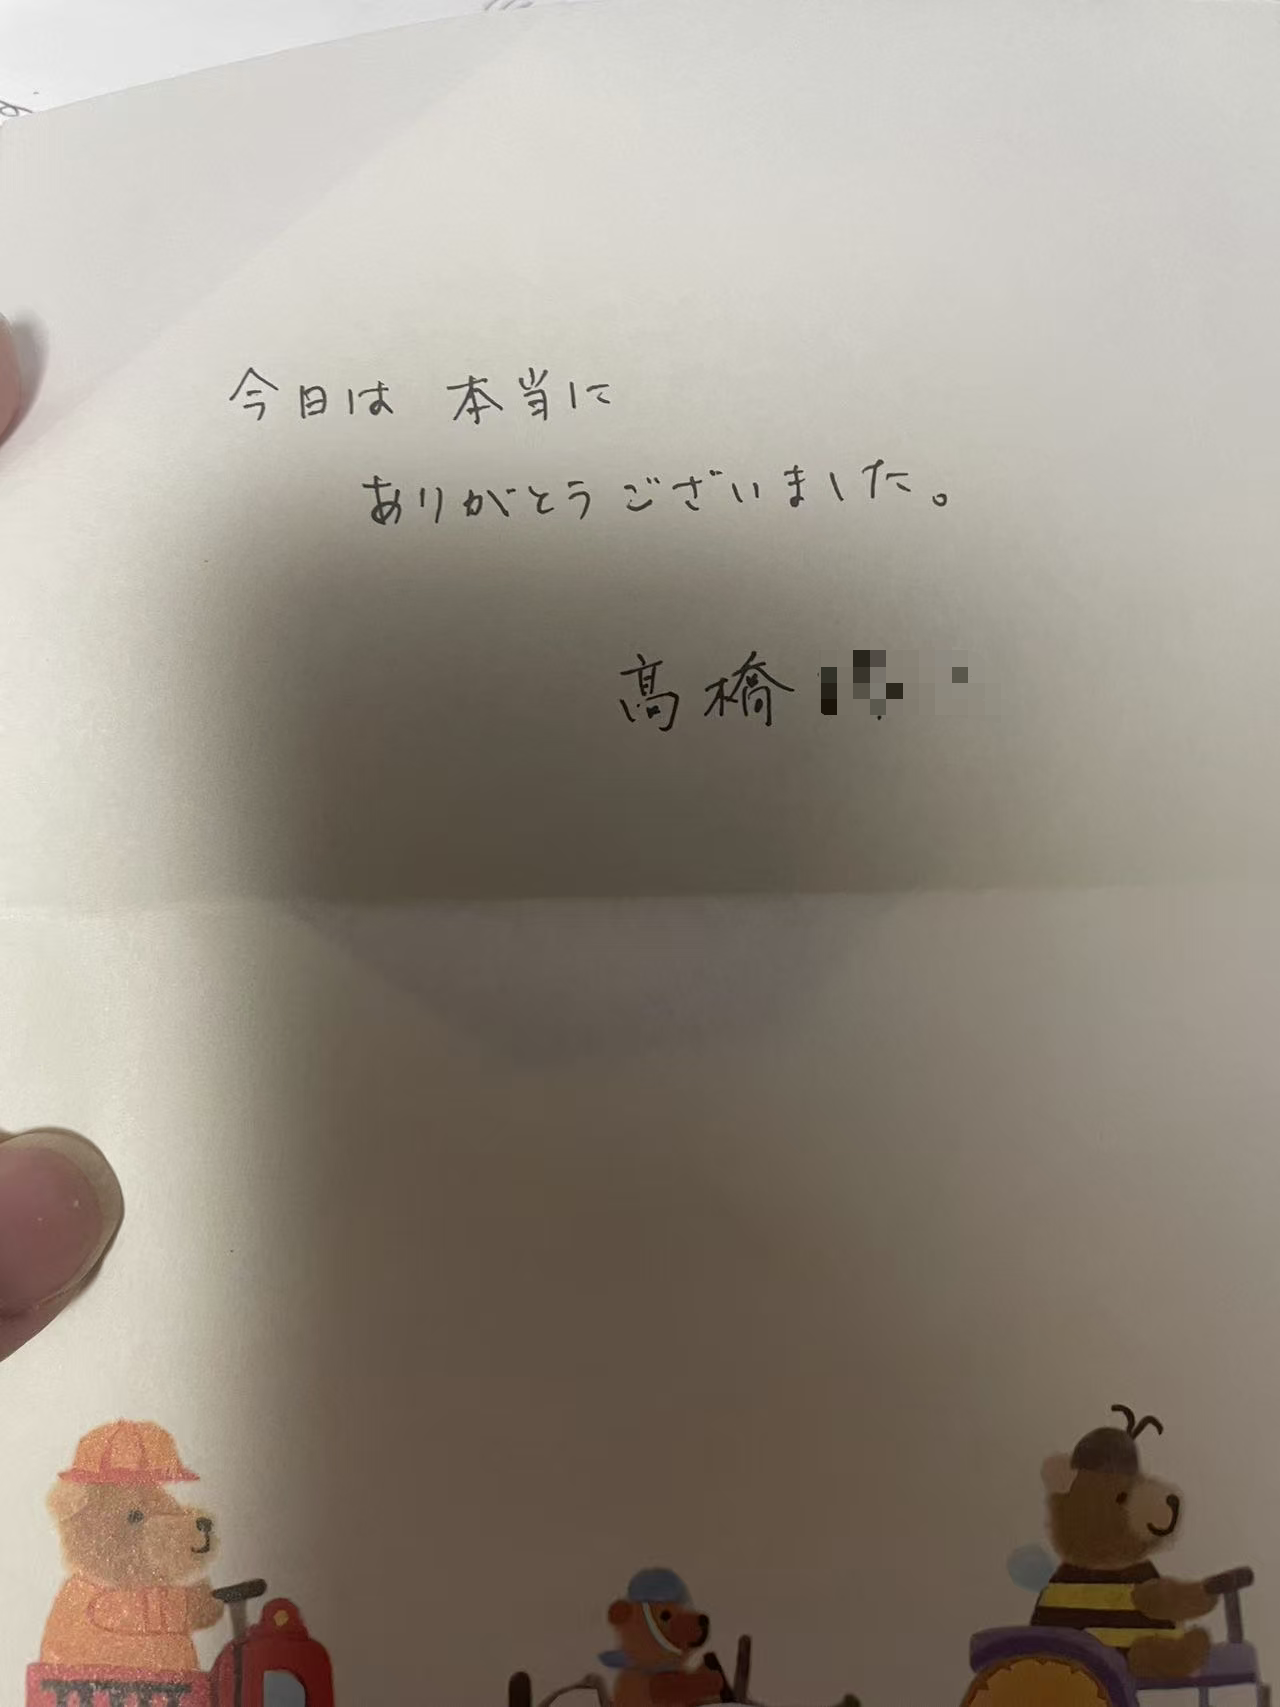 今日は 本当に
ありがとうございました。
髙橋